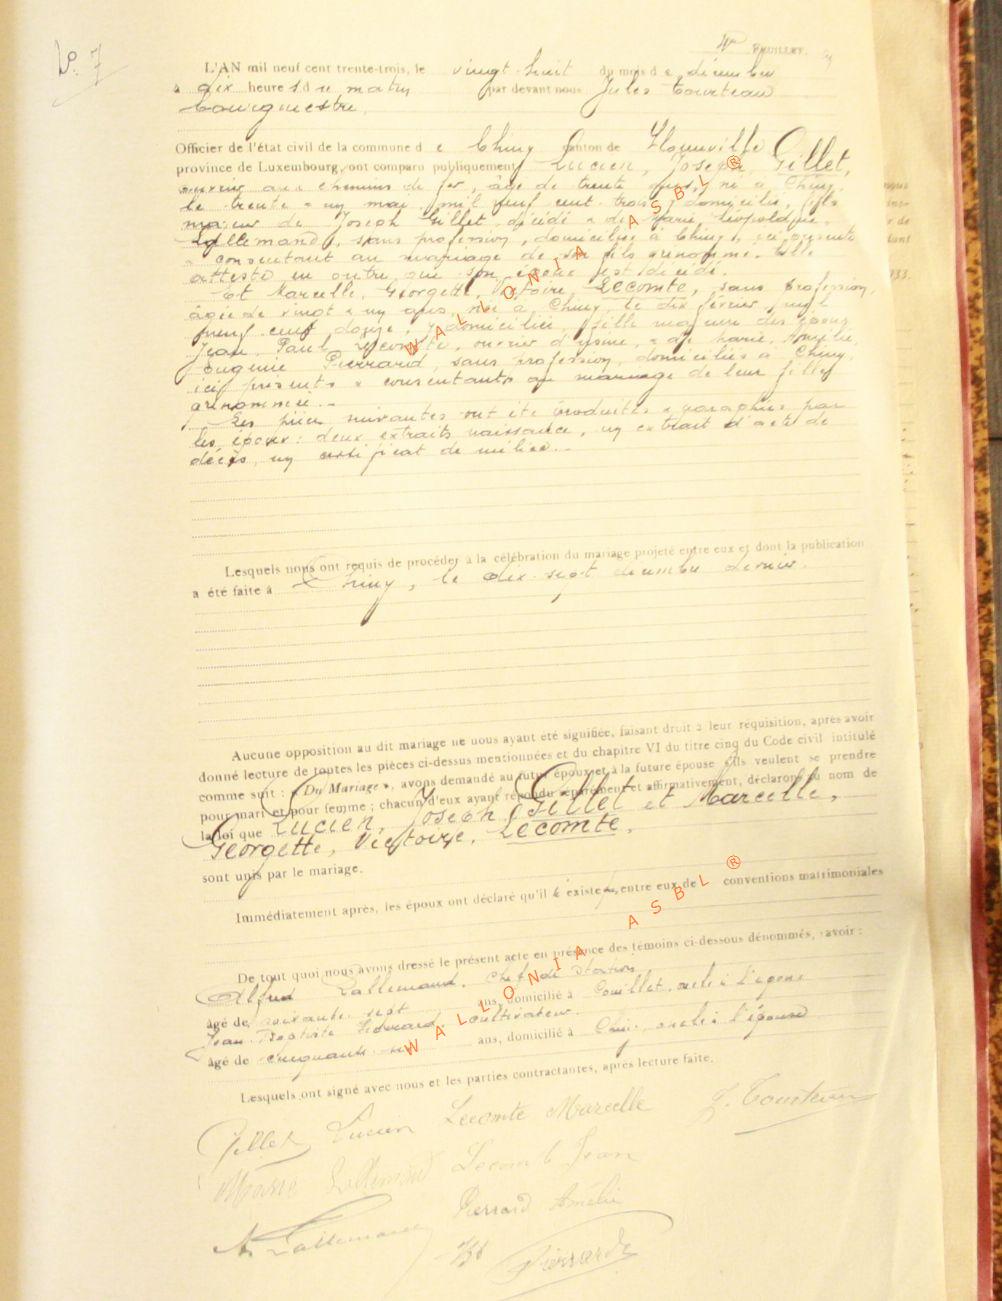 N° 7
FEUILLET.
L'AN mil neuf cent trente-trois, le vingt-huit du mois de décembre
à dix heures du matin par devant nous Jules Tourteau
bourgmestre
Officier de l'état civil de la commune de Chiny canton de Florenville
province de Luxembourg, ont comparu publiquement Lucien, Joseph Gillet,
ouvrier aux chemins de fer, âgé de trente ans, né à Chiny,
le trente & un mai mil neuf cent trois, domicilié, fils
majeur de Joseph Gillet, décédé & de Marie, Léopoldine
Lallemand, sans profession, domiciliée à Chiny, ici présente
& consentant au mariage de son fils prénommé. Elle
atteste en outre que son époux est décédé.
Et Marcelle, Georgette, Victoire, Lecomte, sans profession,
âgée de vingt & un ans, née à Chiny le dix février mil
neuf cent douze, y domiciliée, fille majeure des époux
Jean, Paul Lecomte, ouvrier d'usine, & de Marie, Amélie,
Eugénie Pierrard, sans profession, domiciliés à Chiny,
ici présents & consentants au mariage de leur fille
prénommée.
Les pièces suivantes ont été produites & paraphées par
les époux : deux extraits naissance, un extrait d'acte de
décès, un certificat de milice.
Lesquels nous ont requis de procéder à la célébration du mariage projeté entre eux et dont la publication
a été faite à Chiny, le dix-sept décembre dernier.
Aucune opposition au dit mariage ne nous ayant été signifiée, faisant droit à leur réquisition, après avoir
donné lecture de toutes les pièces ci-dessus mentionnées et du chapitre VI du titre cinq du Code civil intitulé
comme suit : « Du Mariage », avons demandé au futur époux et à la future épouse s'ils veulent se prendre
pour mari et pour femme ; chacun d'eux ayant répondu séparément et affirmativement, déclarons au nom de
la loi que Lucien, Joseph Gillet et Marcelle,
Georgette, Victoire, Lecomte,
sont unis par le mariage.
Immédiatement après, les époux ont déclaré qu'il existe entre eux de conventions matrimoniales
De tout quoi nous avons dressé le présent acte en présence des témoins ci-dessous dénommés, savoir :
Alfred Lallemand, chef de station
âgé de soixante-sept ans, domicilié à Couillet, oncle à l'époux
Jean Baptiste cultivateur
âgé de cinquante ans, domicilié à Chiny, oncle à l'épouse
Lesquels ont signé avec nous et les parties contractantes, après lecture faite.
Gillet Lucien Lecomte Marcelle J. Tourteau
Marie Lallemand Lecomte Jean
Pierrard Amélie
A. Lallemand Pierrard
WALLONIA ASBL ®
WALLONIA ASBL ®